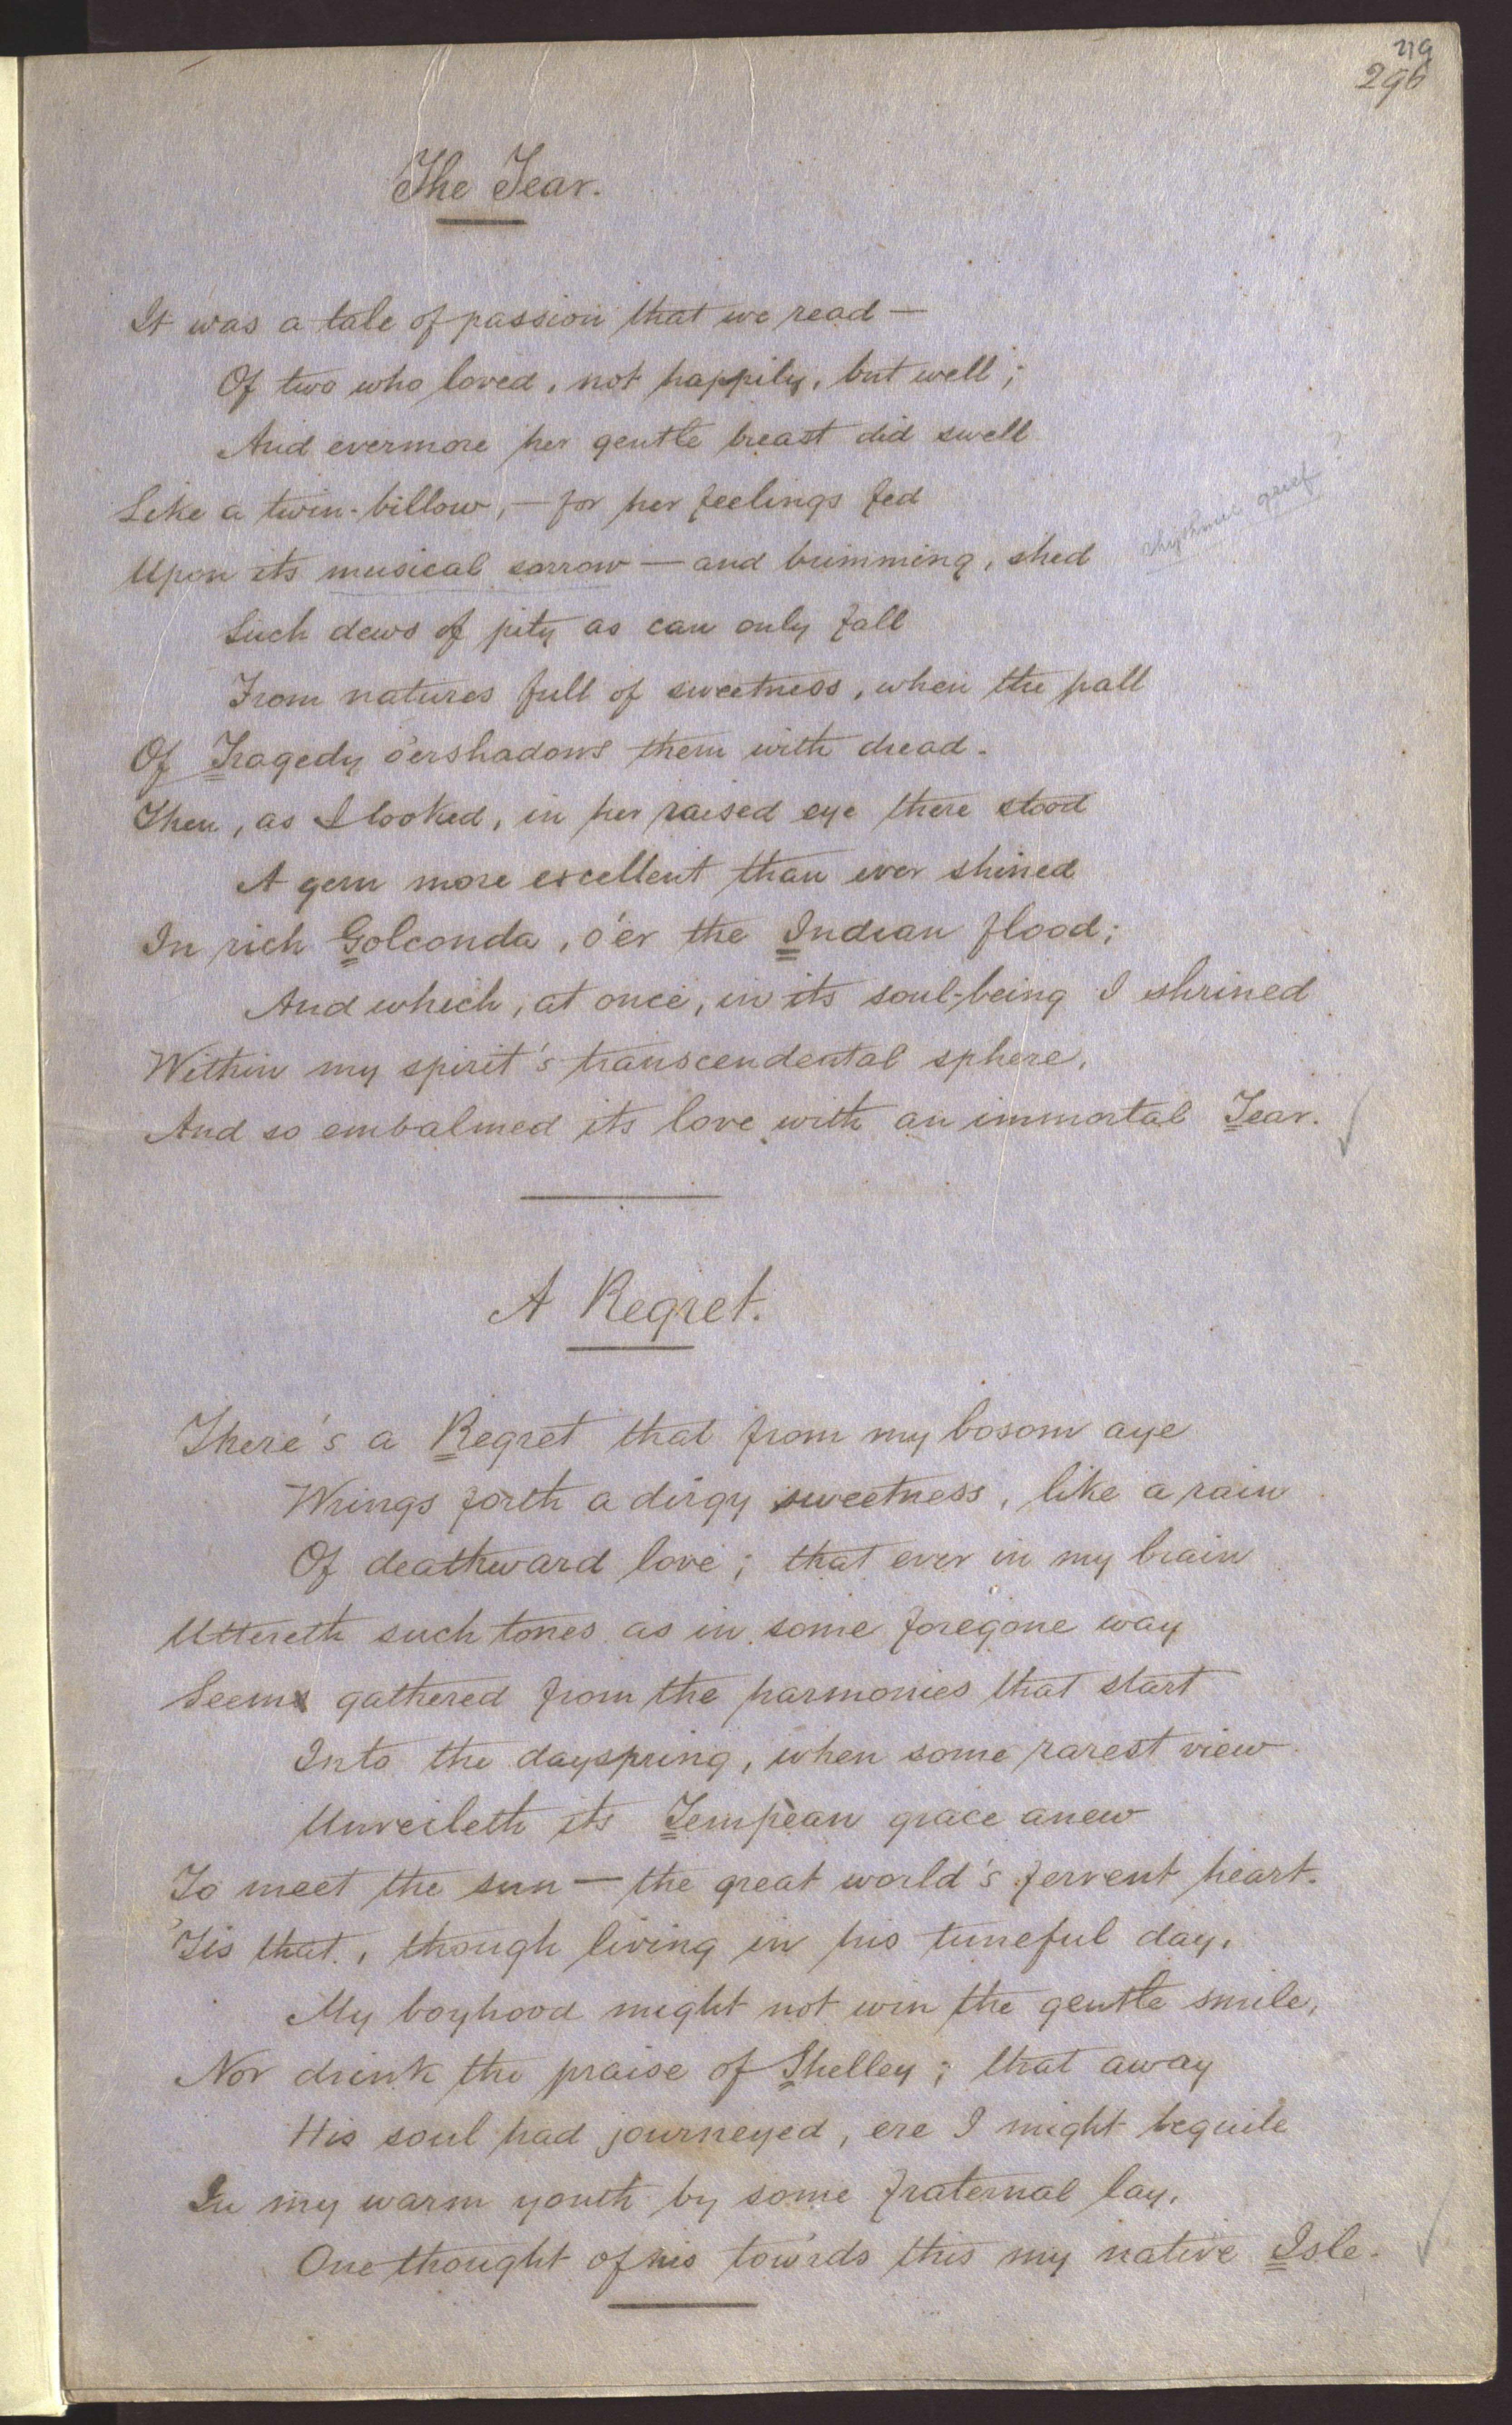 219
296
The Tear.
It was a tale of passion that we read —
Of two who loved, not happily, but well;
And evermore her gentle breast did swell
Like a twin-billow, — for her feelings fed
Upon its musical sorrow — and brimming, shed
rhythmic grief ?
Such dews of pity as can only fall
From natures full of sweetness, when the pall
Of Tragedy o'ershadows them with dread.
Then, as I looked, in her raised eye there stood
A gem more excellent than ever shined
In rich Golconda, o'er the Indian flood;
And which, at once, in its soul-being I shrined
Within my spirit's transcendental sphere,
And so embalmed its love with an immortal Tear.
A Regret.
There's a Regret that from my bosom aye
Wrings forth a dirgy sweetness, like a rain
Of deathward love; that ever in my brain
Uttereth such tones as in some foregone way
Seem gathered from the harmonies that start
Into the dayspring, when some rarest view
Unveileth its Tempèan grace anew
To meet the sun — the great world's fervent heart.
'Tis that, though living in his tuneful day,
My boyhood might not win the gentle smile,
Nor drink the praise of Shelley; that away
His soul had journeyed, ere I might beguile
In my warm youth by some fraternal lay,
One thought of his towards this my native Isle.